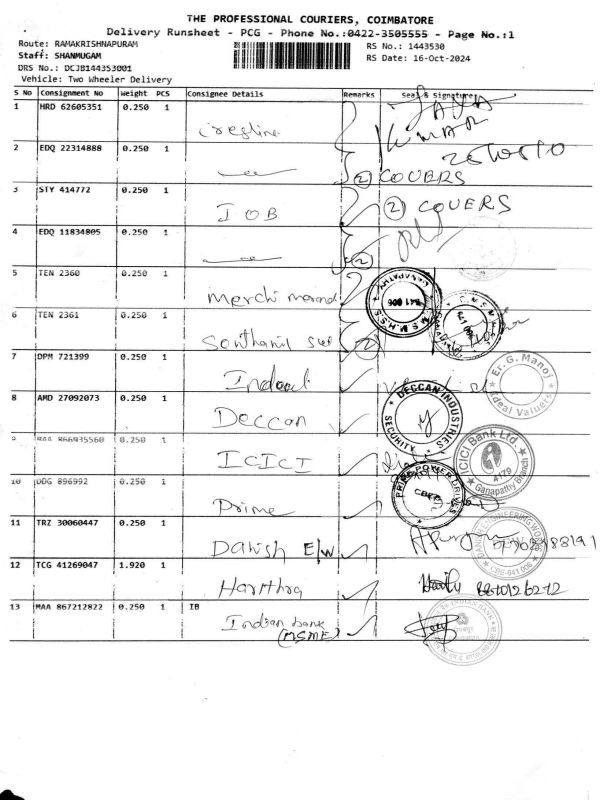 THE PROFESSIONAL COURIERS, COIMBATORE
Delivery Runsheet - PCG - Phone No.:0422-3505555 - Page No.:1
Route: RAMAKRISHNAPURAM
RS No.: 1443530
Staff: SHANMUGAM
RS Date: 16-Oct-2024
DRS No.: DCJB144353001
Vehicle: Two Wheeler Delivery
S No Consignment No Weight PCS Consignee Details Remarks Seal & Signature
1 HRD 62605351 0.250 1 JAYA
KUMAR
2 EDQ 22314888 0.250 1
② COVERS
3 STY 414772 0.250 1
IOB ② COVERS
4 EDQ 11834805 0.250 1
②
5 TEN 2360 0.250 1
6 TEN 2361 0.250 1
②
7 DPM 721399 0.250 1
Er.G. Manoj
Ideal Valuers
8 AMD 27092073 0.250 1
Deccan
DECCAN INDUSTRIES
SECURITY
9 MAA 866935560 0.250 1
ICICI
ICICI Bank Ltd.
4179
Ganapathy Branch
10 DDG 896992 0.250 1
Prime
PRIME POWER DRIVES
CBE-6
11 TRZ 30060447 0.250 1
Danish E/W
CBE-641 006
12 TCG 41269047 1.920 1
Harthra
13 MAA 867212822 0.250 1 IB
Indian bank
(MSME)
INDIAN BANK